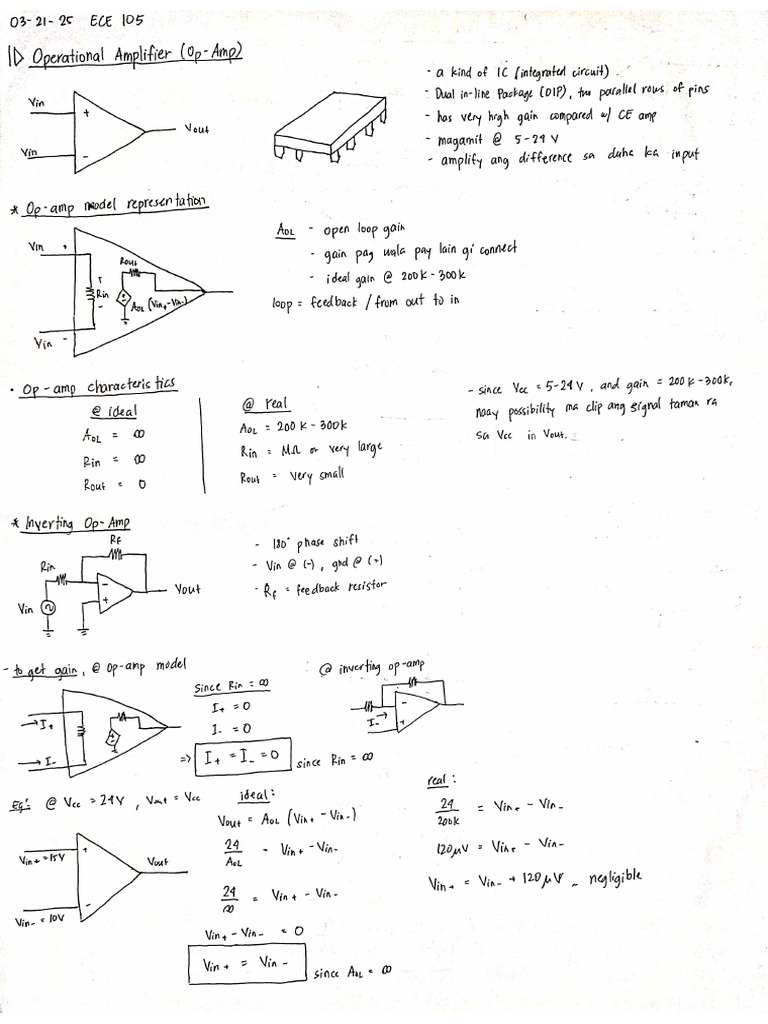 03-21-25 ECE 105
1) Operational Amplifier (Op-Amp)
Vin
+
Vin
-
Vout
- a kind of IC (integrated circuit).
- Dual in-line Package (DIP), two parallel rows of pins
- has very high gain compared w/ CE amp
- magamit @ 5-24 V
- amplify ang difference sa duha ka input
* Op-amp model representation
Vin +
+
Rin
-
Rout
AOL (Vin+ - Vin-)
Vin -
AOL - open loop gain
- gain pag wala pay lain gi connect
- ideal gain @ 200k - 300k
loop = feedback / from out to in
• Op-amp characteristics
@ ideal
AOL = ∞
Rin = ∞
Rout = 0
@ real
AOL = 200k - 300k
Rin = MΩ or very large
Rout = very small
- since Vcc = 5-24 V, and gain = 200k-300k,
naay possibility ma clip ang signal taman ra
sa Vcc in Vout.
* Inverting Op-Amp
Rf
Rin
-
+
Vout
Vin
- 180° phase shift
- Vin @ (-), gnd @ (+)
- Rf = feedback resistor
- to get gain, @ op-amp model
I+
I-
since Rin = ∞
I+ = 0
I- = 0
=> I+ = I- = 0 since Rin = ∞
@ inverting op-amp
-
I-
+
Eg: @ Vcc = 24V, Vout = Vcc
Vin+ = 15V
+
Vout
Vin- = 10V
-
ideal:
Vout = AOL (Vin+ - Vin-)
24/AOL = Vin+ - Vin-
24/∞ = Vin+ - Vin-
Vin+ - Vin- = 0
Vin+ = Vin- since AOL = ∞
real:
24/200k = Vin+ - Vin-
120μV = Vin+ - Vin-
Vin+ = Vin- + 120μV ~ negligible